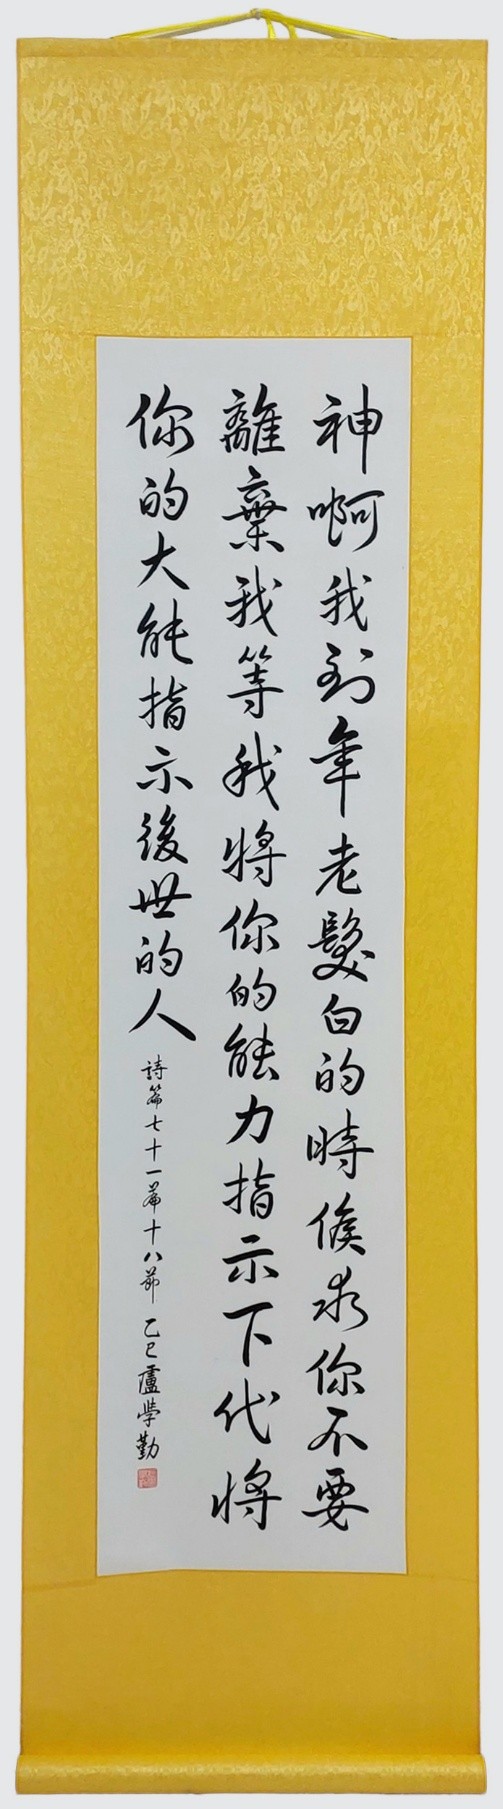 神啊我到年老髮白的時候求你不要
離棄我等我將你的能力指示下代將
你的大能指示後世的人
詩篇七十一篇十八節 乙巳盧學勤